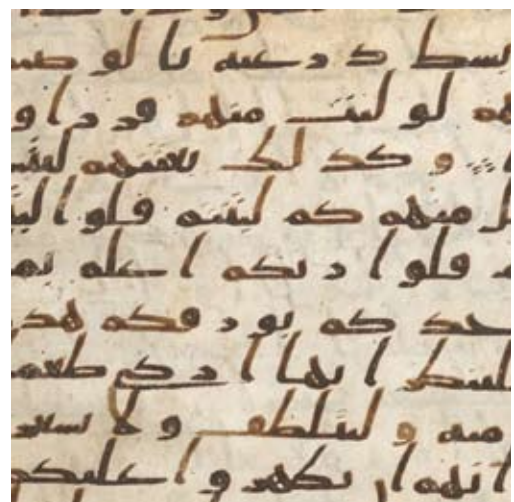 بسط ذرعيه بالوصيـ
هم لوليت منهم فررا و
ا وكذلك بعثنهم ليتسـ
ل منهم كم لبثتم قلوا لبثـ
م قلوا ربكم اعلم بمـ
حدكم بورقكم هذ
لينظر ايها ازكى طعما
منه وليتلطف ولا يشعرن
انهم ان يظهروا عليكم